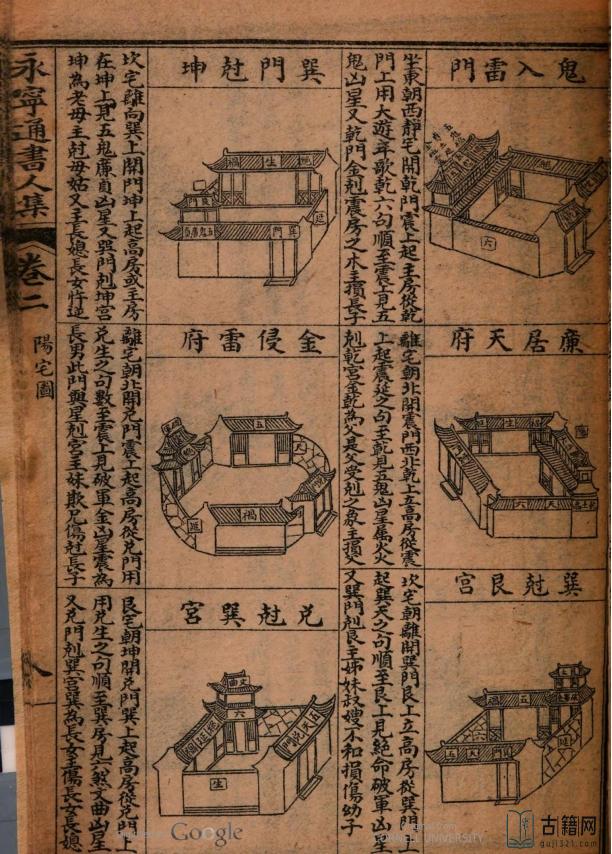 鬼入雷門
坐東朝西靜宅開乾門震上起主房從乾
門上用大遊年歌乾六句順至震上見五
鬼凶星又乾門金剋震房之木主損長子
六
巽門尅坤
坎宅離向巽上開門坤上起高房或主房
在坤上見五鬼廉貞凶星又巽門剋坤宮
坤為老母主尅母姑又主長媳長女忤逆
生
延
廉居天府
離宅朝北開震門西北乾上立高房從震
上起震延之句至乾見五鬼凶星属火火
剋乾宮金乾為人是父受剋之象主損父
生
天
六
金侵雷府
離宅朝北開兌門震上起高房從兌門用
兌生之句數至震上見破軍金凶星震為
長男此門與星剋宮主妹欺兄傷尅長子
五
禍
延
巽尅艮宮
坎宅朝離開巽門艮上立高房從巽門上
起巽天之句順至艮上見絕命破軍凶星
又巽門剋艮主姊妹叔嫂不和損傷幼子
五
六
兌尅巽宮
艮宅朝坤開兌門巽上起高房從兌門上
用兌生之句順至巽房見六煞文曲凶星
又兌門剋巽宮巽為長女主傷長女長媳
文曲
六
生
永寧通書人集
卷二
陽宅圖
八
Google
UNIVERSITY
古籍网
guji321.com